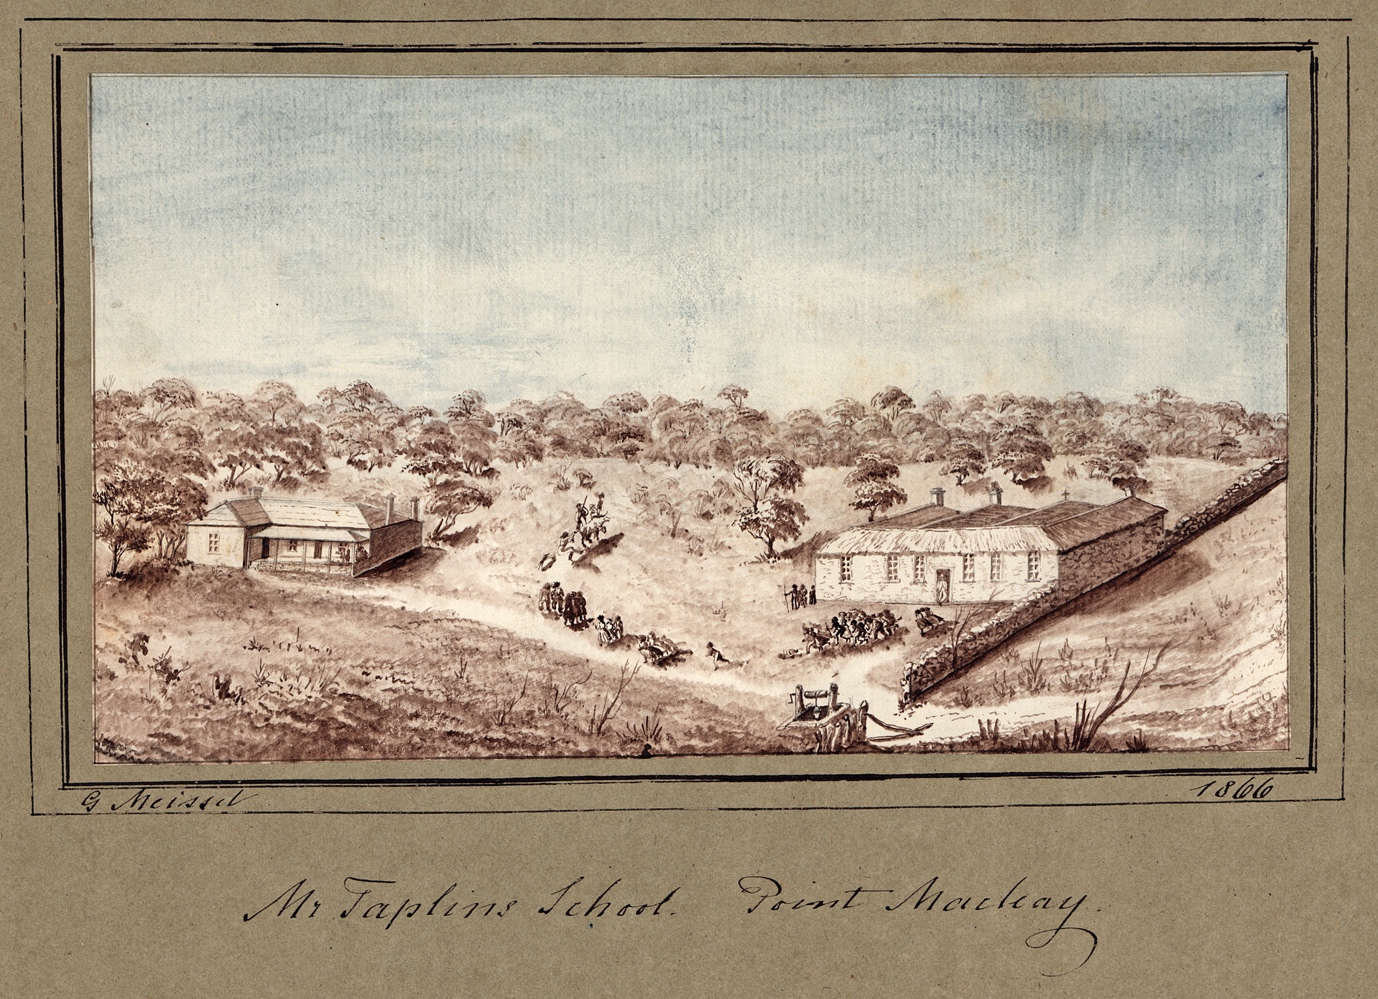 G Meissel
1866
Mr Taplins School. Point Macleay.